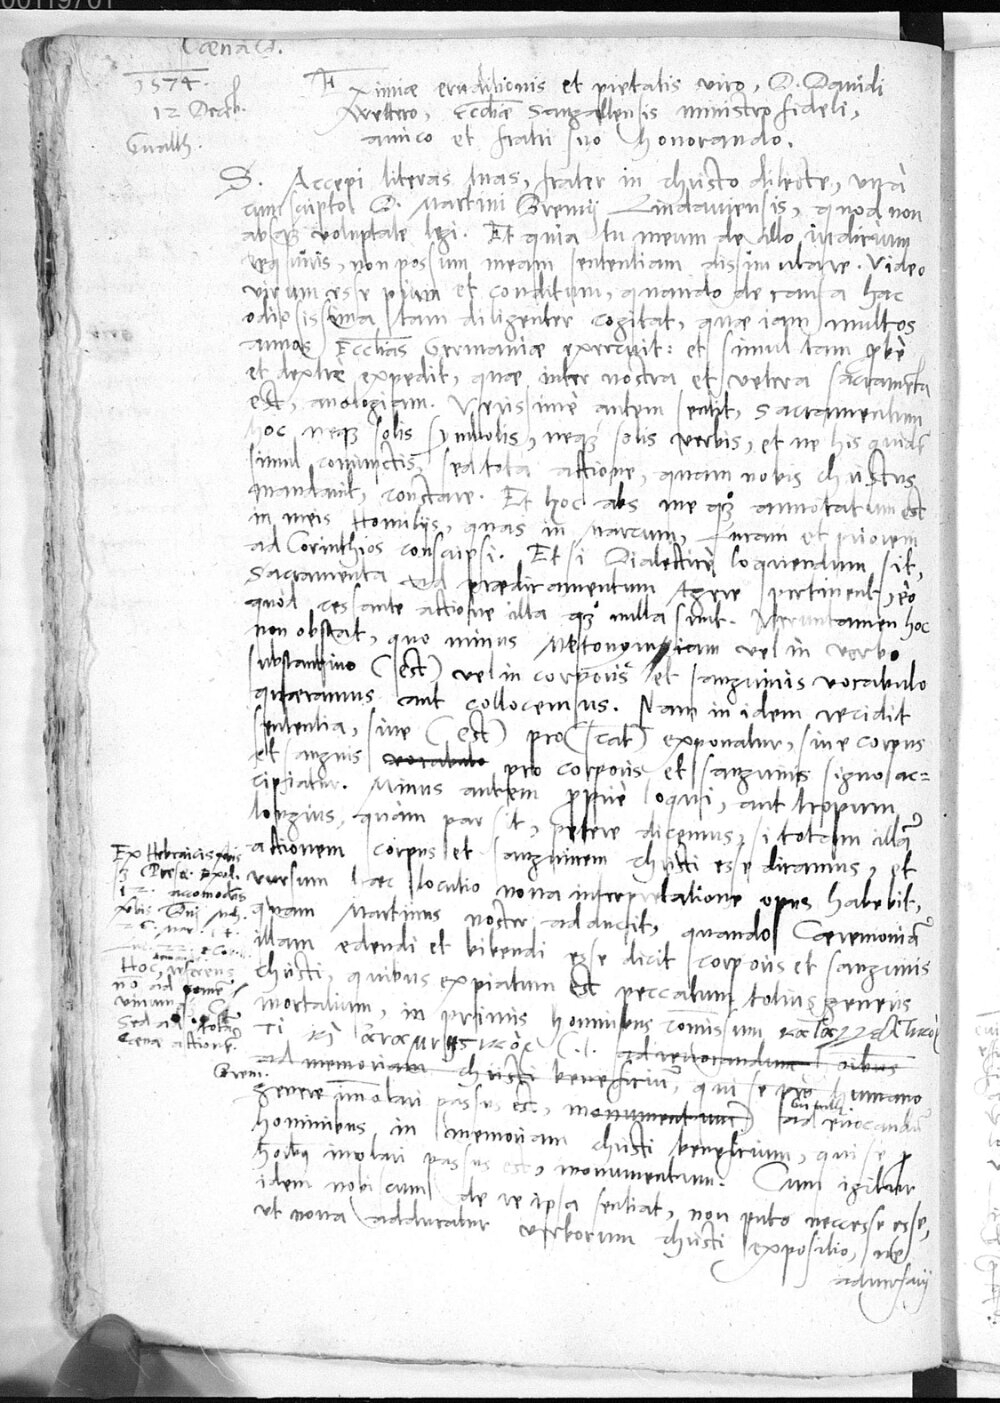 00119701
Cœna D.
1574.
12 Decēb.
Gualth.
Eximiæ eruditionis et pietatis viro, D. Dauidi
Wettero, Ecclīæ Sangallensis ministro fideli,
amico et fratri suo honorando.
S. Accepi literas tuas, frater in christo dilecte, unà
cum scripto D. Martini Bremij Lindauiensis, quod non
absq; voluptate legi. Et quia tu meum de illo iudicium
requiris, non possum meam sententiam dissimulare. Video
virum esse pium et conditum, quando de causa hac
odiosissima tam diligenter cogitat, quæ iam multos
annos Ecclīas Germaniæ exercuit: et simul tam pbè
et dextrè expedit, quæ inter nostra et vetera sacramēta
est, anologiam. Verissimè autem sentit, Sacramentum
hoc neq; solis symbolis, neq; solis verbis, et ne his quidē
simul coniunctis, sed tota actione, quam nobis christus
mandauit, constare. Et hoc abs me qq; annotatum est
in meis Homilijs, quas in Marcum, Lucam et priorem
ad Corinthios conscripsi. Et si Dialecticè loquendum sit,
Sacramenta ad prædicamentum Agere pertinent, eò
quòd cessante actione illa qq; nulla sint. Veruntamen hoc
non obstat, quo minus Metonymiam vel in verbo
substantiuo (est) vel in corporis et sanguinis vocabulo
quæramus aut collocemus. Nam in idem recidit
sententia, siue (est) pro (scat) exponatur, siue corpus
et sanguis vocabulo pro corporis et sanguinis signo ac=
cipiatur. Minus autem ppriè loqui, aut tropum
longius, quàm par sit, petere dicemus, si totam illā
actionem corpus et sanguinem christi esse dicamus, et
rursum hæc locutio noua interpretatione opus habebit,
quam Martinus noster adducit, quando Cæremoniā
illam edendi et bibendi esse dicit corporis et sanguinis
christi, quibus expiatum est peccatum totius generis
mortalium, in primis hominibus com̄issum
ad reuocandum oībus
ad memoriam christi beneficiū, qui se pro humano
genere im̄olari passus est, monumentum) ad reuocandū
hominibus in memoriam christi beneficium, qui se p
hoībus imolari passus est, monumentum. Cum igitur
idem nobiscum de re ipsa sentiat, non puto necesse esse,
ut noua adducatur verborum christi expositio, ne
aduersarij
Ex Hebraicis
12. accomodās
Hoc, referens
nō ad panē
vinum
Sed ad totā
Cœnæ actionē.
Brem.
Gualth.